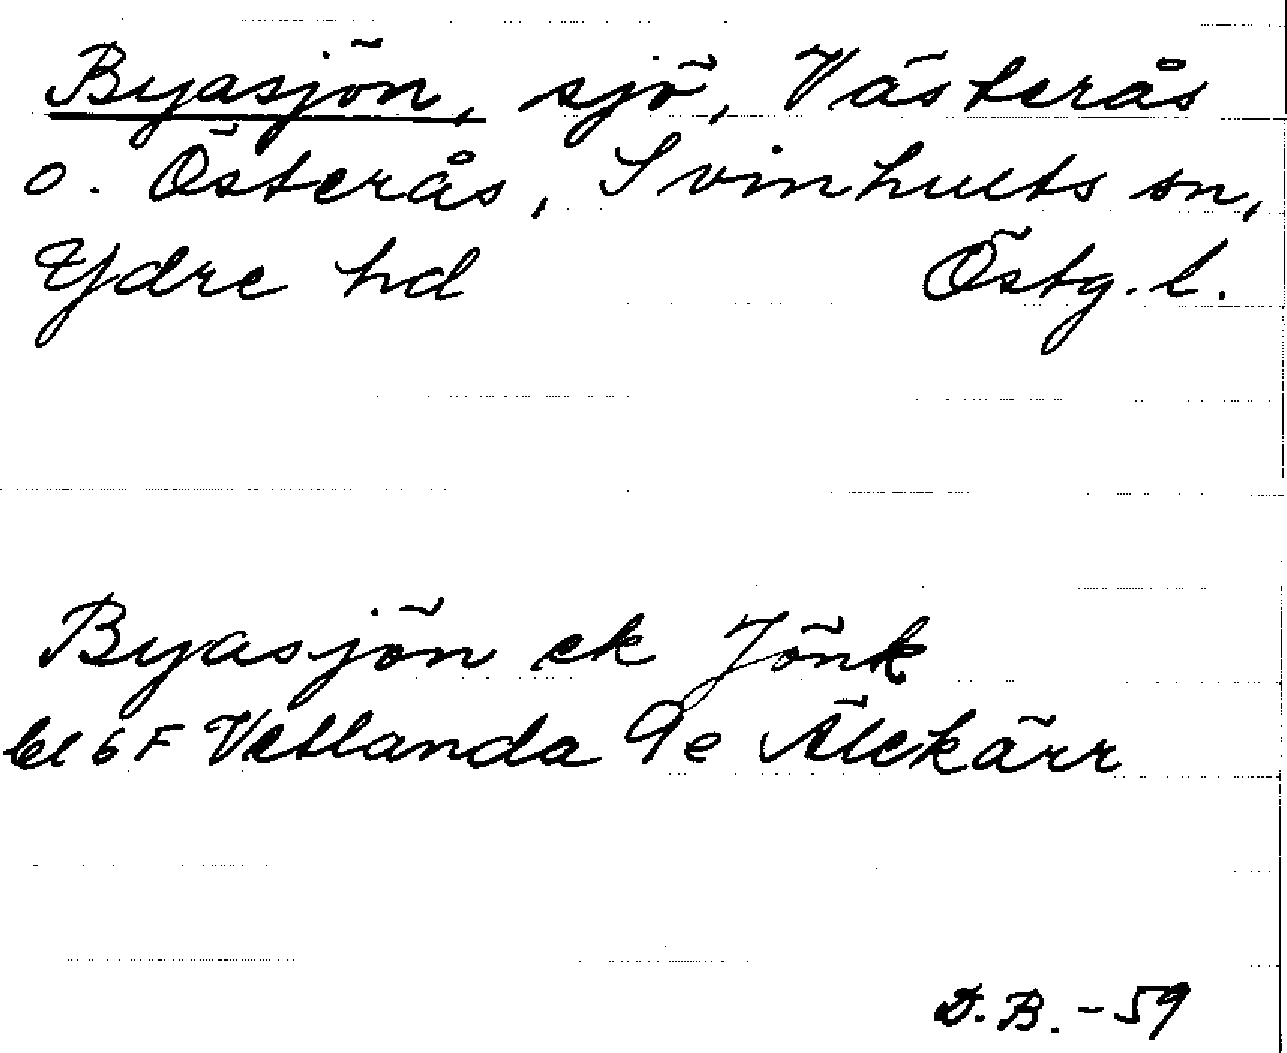 Byasjön, sjö, Västerås
o. Österås, Svinhults sn,
Ydre hd Östg. l.
Byasjön ek Jönk
bl 6 F Vetlanda 9e Älekärr
D.B. -59